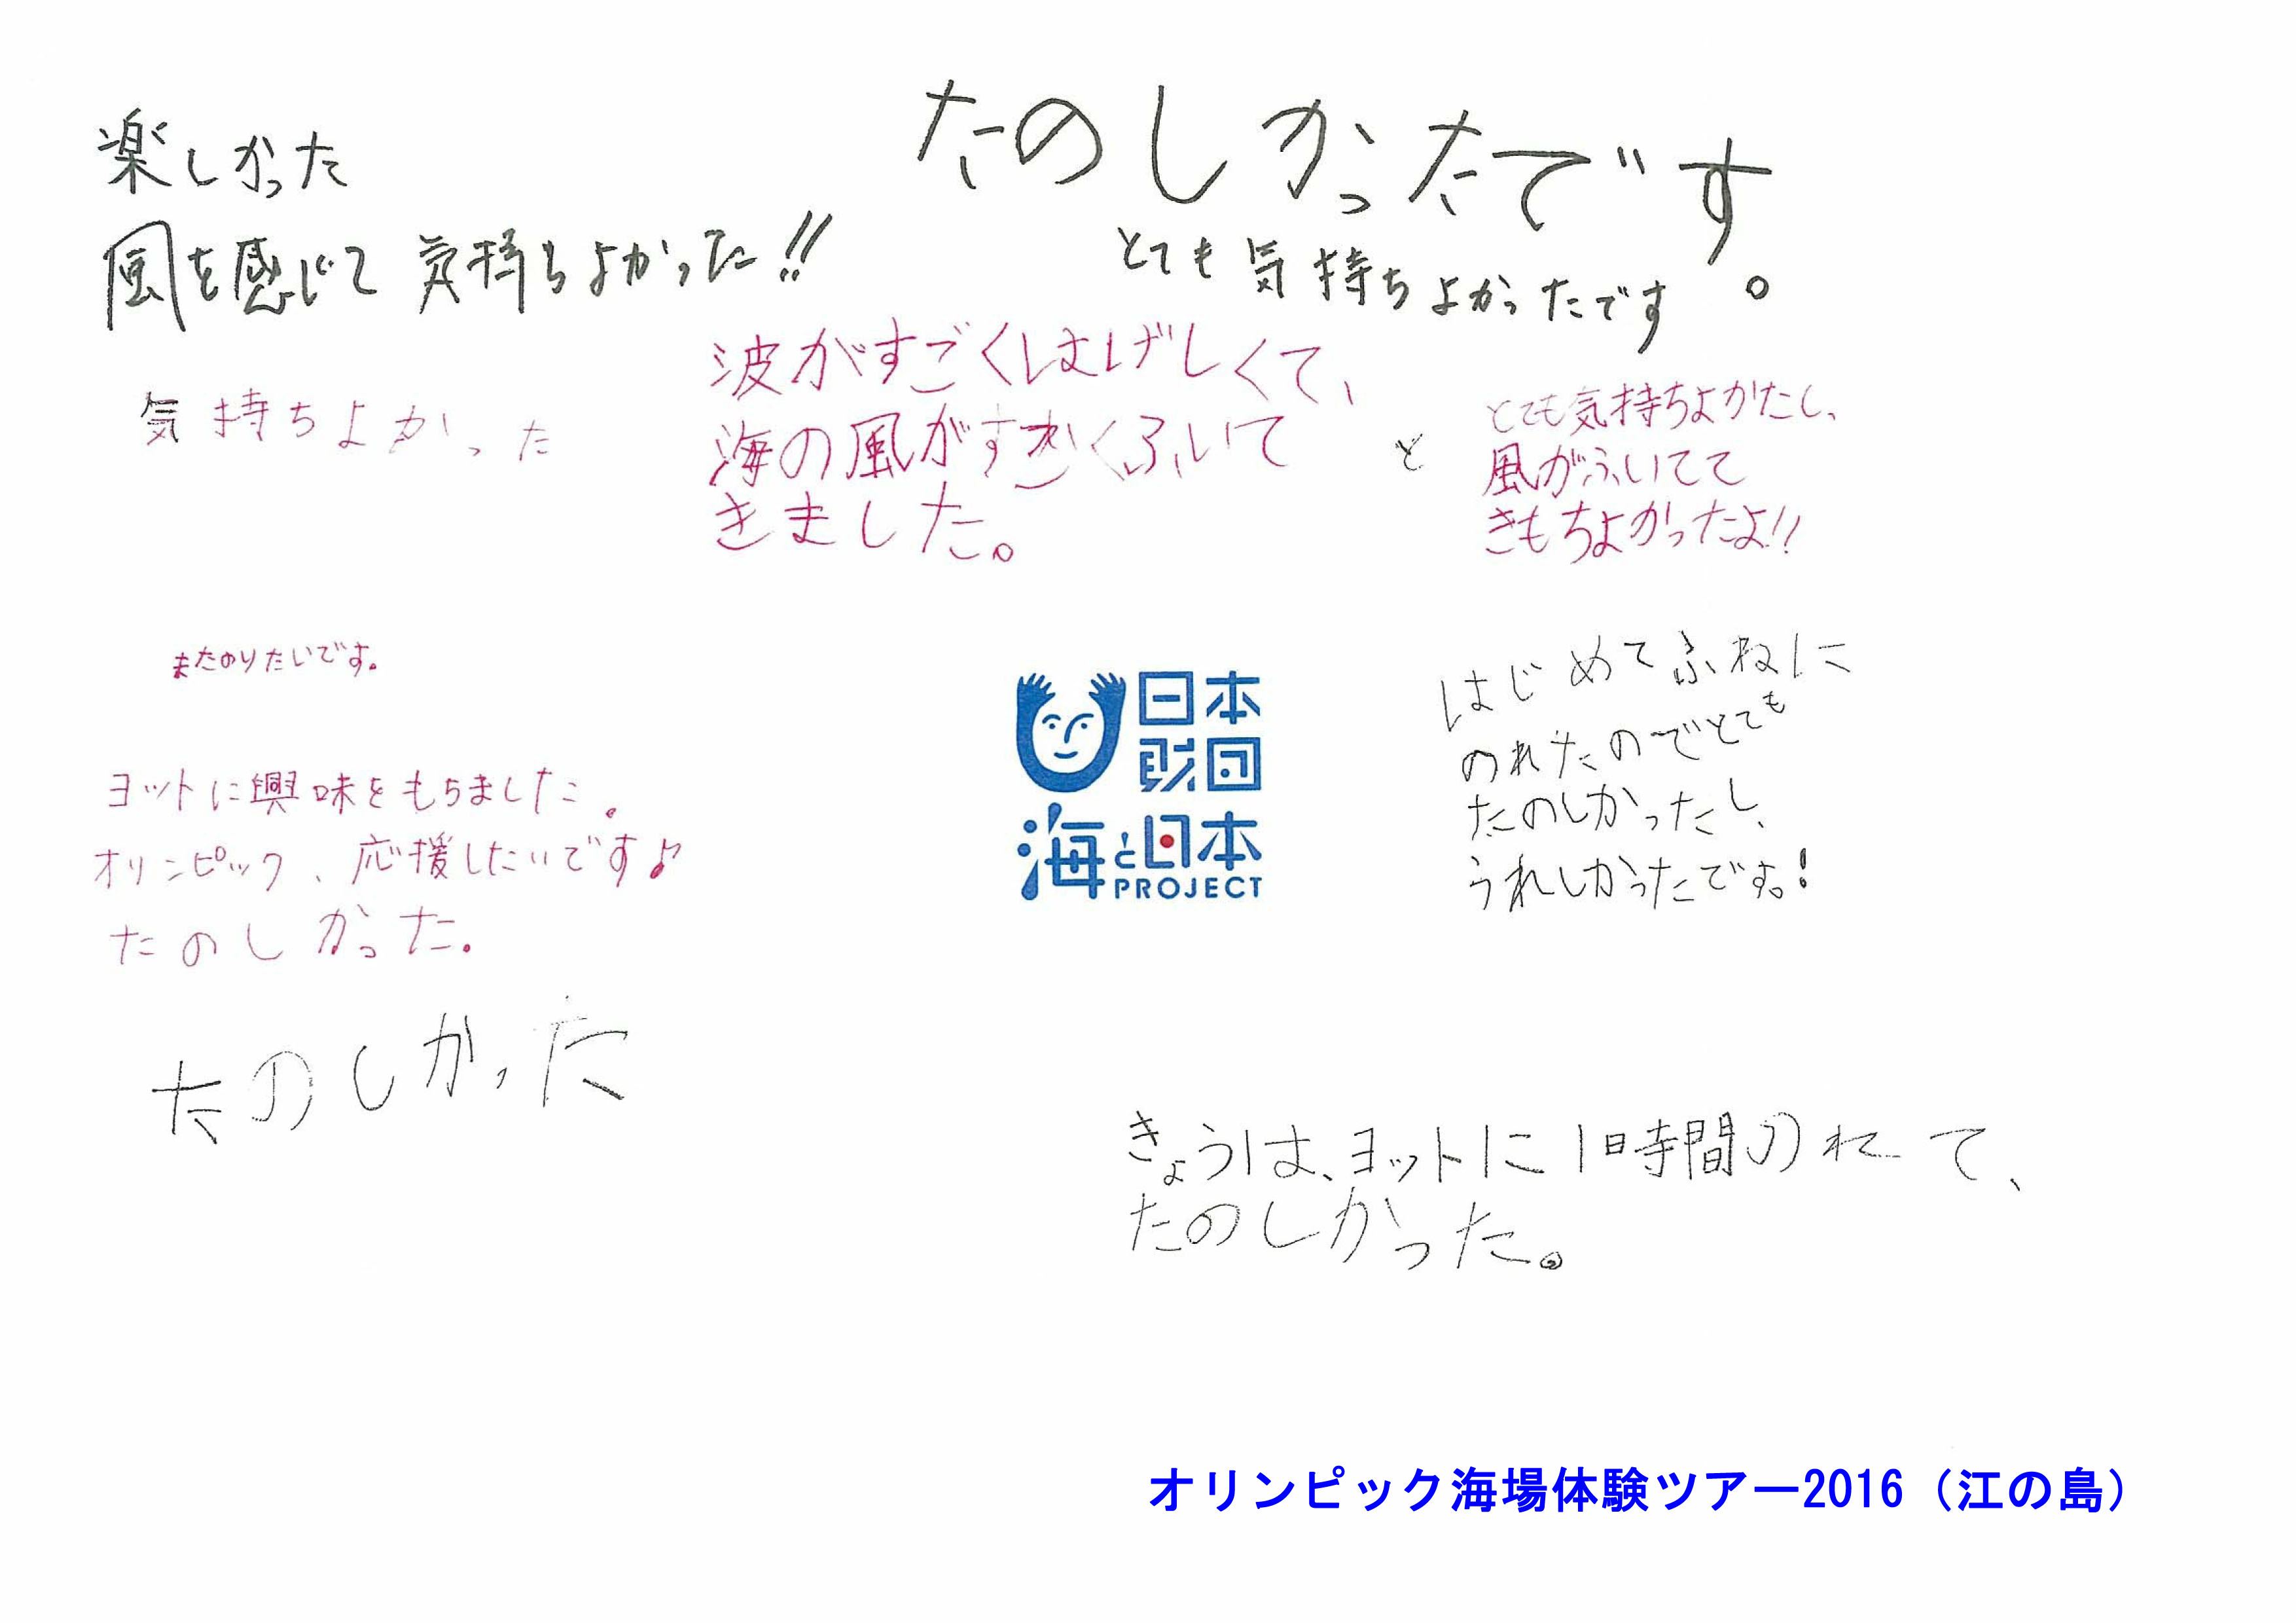 楽しかった
風を感じて 気持ちよかった!!
たのしかったです。
とても気持ちよかったです
気持ちよかった
波がすごくはげしくて、
海の風がすごくふいて
きました。
と
とても気持ちよかたし、
風がふいてて
きもちよかったよ!!
またのりたいです。
ヨットに興味をもちました。
オリンピック、応援したいです♪
たのしかった。
たのしかった
日本
財団
海と日本
PROJECT
はじめてふねに
のれたのでとても
たのしかったし、
うれしかったです。!
きょうは、ヨットに1時間のれて、
たのしかった。
オリンピック海場体験ツアー2016（江の島）